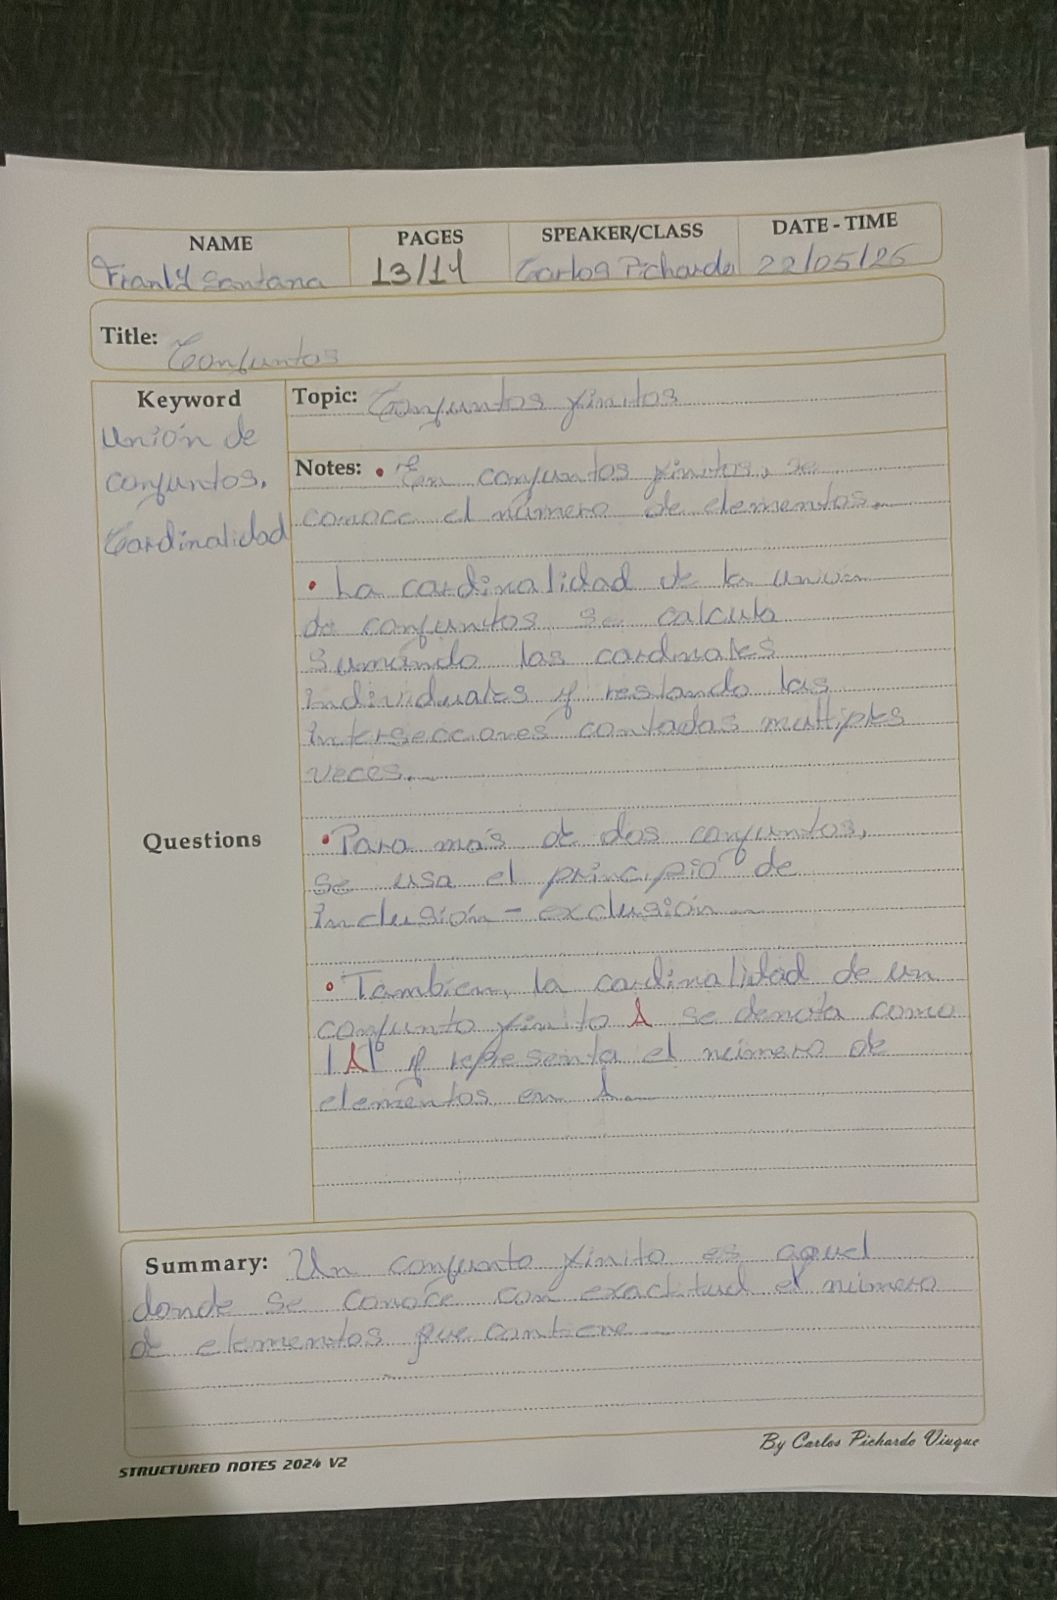 NAME PAGES SPEAKER/CLASS DATE - TIME
Franly Santana 13/14 Carlos Pichardo 22/05/25
Title: Conjuntos
Keyword
Unión de
conjuntos.
Cardinalidad
Topic: Conjuntos finitos
Notes: • En conjuntos finitos, se
conoce el número de elementos.
• La cardinalidad de la unión
de conjuntos se calcula
sumando las cardinales
individuales y restando las
intersecciones contadas multiples
veces.
Questions
• Para más de dos conjuntos,
se usa el principio de
inclusión - exclusión
• Tambien, la cardinalidad de un
conjunto finito A se denota como
|A| y representa el número de
elementos en A.
Summary: Un conjunto finito es aquel
donde se conoce con exactitud el número
de elementos que contiene
By Carlos Pichardo Viuque
STRUCTURED NOTES 2024 V2